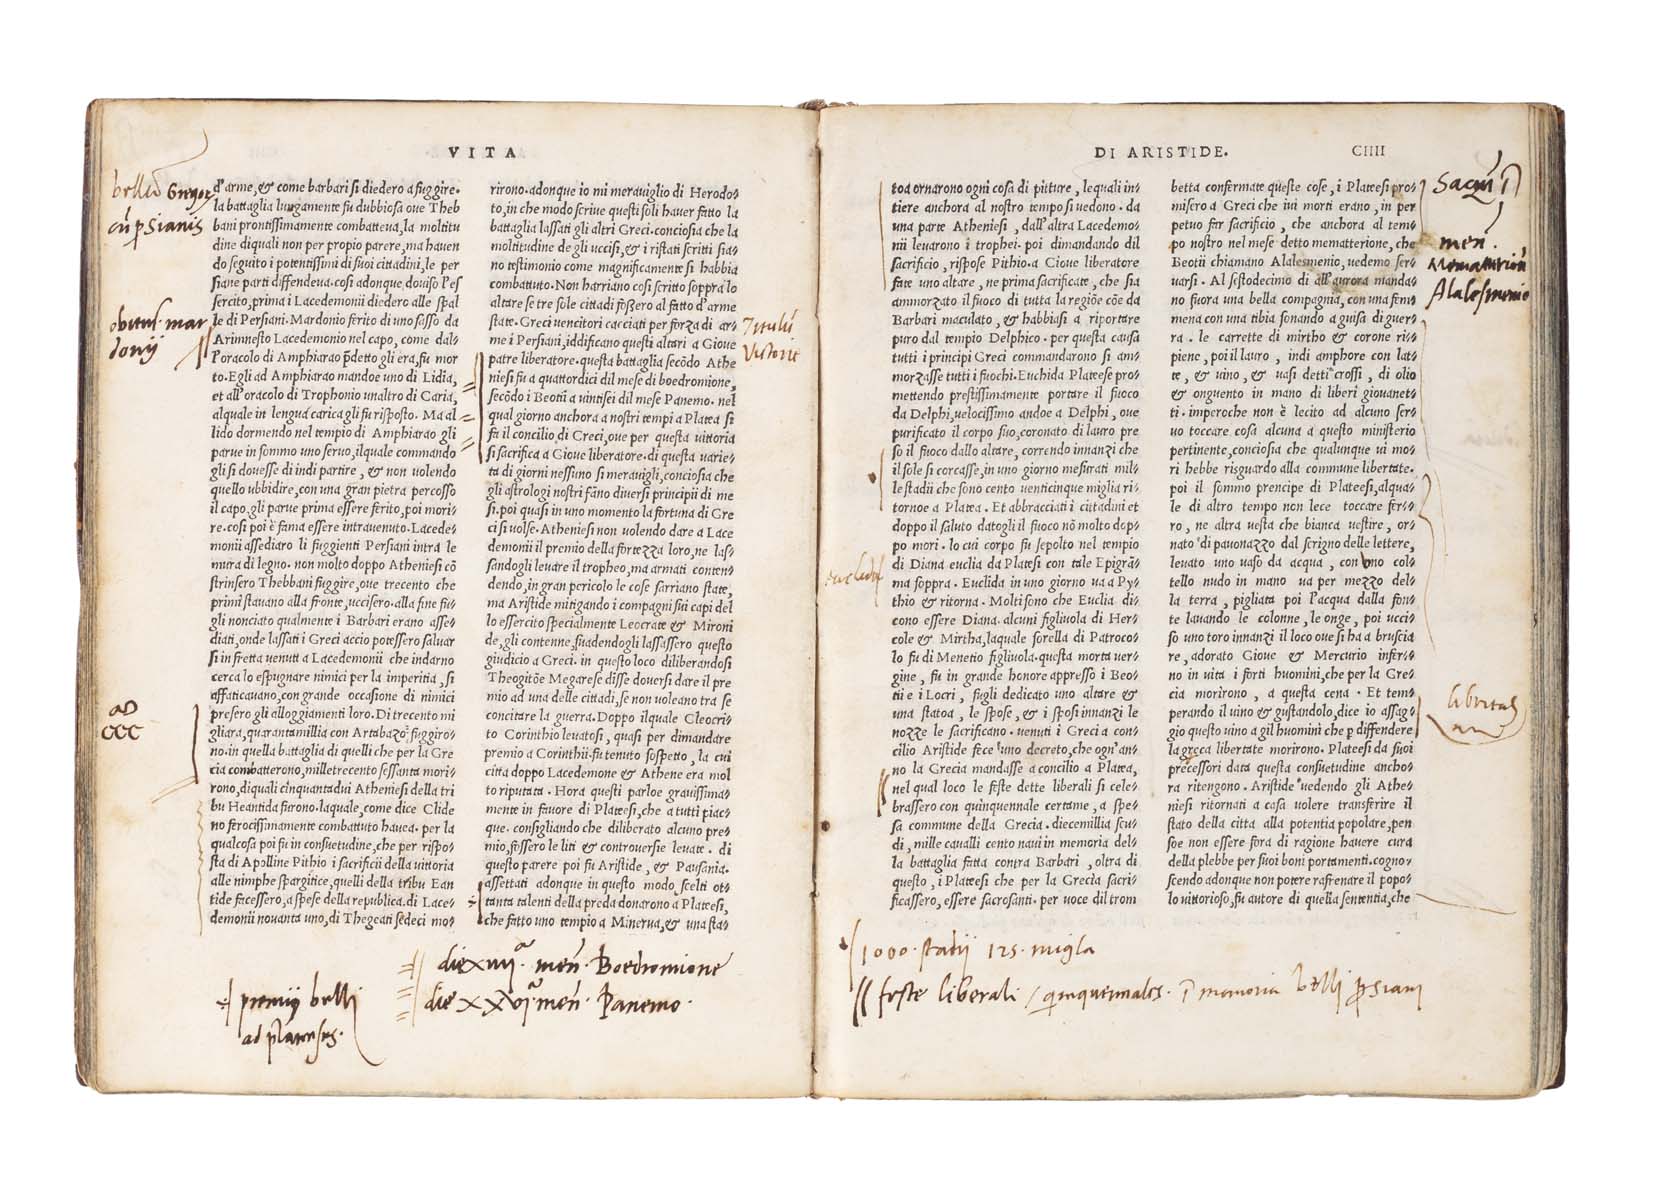 VITA
d'arme, & come barbari si diedero a fuggire.
la battaglia lungamente fu dubbiosa ove Theb
bani prontissimamente combatteva, la moltitu
dine diquali non per propio parere, ma haven
do seguito i potentissimi di suoi cittadini, le per
siane parti diffendeva. cosi adonque, doviso l'es
sercito, prima i Lacedemonii diedero alle spal
le di Persiani. Mardonio ferito di uno sasso da
Arimnesto Lacedemonio nel capo, come dal-
l'oracolo di Amphiarao p̄detto gli era, fu mor
to. Egli ad Amphiarao mandoe uno di Lidia,
et all'oracolo di Trophonio unaltro di Caria,
alquale in lengua carica gli fu risposto. Ma al
lido dormendo nel tempio di Amphiarao gli
parve in sommo uno servo, ilquale commando
gli si dovesse di indi partire, & non volendo
quello ubbidire, con una gran pietra percosso
il capo, gli parve prima essere ferito, poi mori-
re. cosi poi è fama essere intravenuto. Lacede-
monii assediaro li fuggienti Persiani intra le
mura di legno. non molto doppo Atheniesi cō
strinsero Thebbani fuggire, ove trecento che
primi stavano alla fronte, uccisero. alla fine fu-
gli nonciato qualmente i Barbari erano asse-
diati, onde lassati i Greci accio potessero salvar
si in fretta venuti a Lacedemonii che indarno
cerca lo espugnare nimici per la imperitia, si
affaticavano, con grande occasione di nimici
presero gli alloggiamenti loro. Di trecento mi
gliara, quarantamillia con Artabazo fuggiro-
no. in quella battaglia di quelli che per la Gre
cia combatterono, milletrecento sessanta mori-
rono, diquali cinquantadui Atheniesi della tri
bu Heantida furono. laquale, come dice Clide
no ferocissimamente combattuto havea. per la
qualcosa poi fu in consuetudine, che per rispo-
sta di Apolline Pithio i sacrificii della vittoria
alle nimphe spargitice, quelli della tribu Ean
tide facessero, a spese della republica. di Lace-
demonii novanta uno, di Thegeati sedeci mo-
rirono. adonque io mi meraviglio di Herodo-
to, in che modo scrive questi soli haver fatto la
battaglia lassati gli altri Greci. conciosia che la
moltitudine de gli uccisi, & i ristati scritti sia-
no testimonio come magnificamente si habbia
combattuto. Non harriano cosi scritto soppra lo
altare se tre sole cittadi fossero al fatto d'arme
state. Greci vencitori cacciati per forza di ar-
me i Persiani, iddificano questi altari a Giove
patre liberatore. questa battaglia secōdo Athe
niesi fu a quattordici dil mese di boedromione,
secōdo i Beotii a vintisei dil mese Panemo. nel
qual giorno anchora a nostri tempi a Platea si
fa il concilio di Greci, ove per questa vittoria
si sacrifica a Giove liberatore. di questa varie-
ta di giorni nessuno si meravigli, conciosia che
gli astrologi nostri fāno diversi principii di me
si. poi quasi in uno momento la fortuna di Gre
ci si volse. Atheniesi non volendo dare a Lace
demonii il premio della fortezza loro, ne las-
sandogli levare il tropheo, ma armati conten-
dendo, in gran pericolo le cose sarriano state,
ma Aristide mitigando i compagni sui capi del
lo essercito specialmente Leocrate & Mironi
de, gli contenne, suadendogli lassassero questo
giudicio a Greci. in questo loco diliberandosi
Theogitōe Megarese disse doversi dare il pre
mio ad una delle cittadi, se non voleano tra se
concitare la guerra. Doppo ilquale Cleocri-
to Corinthio levatosi, quasi per dimandare
premio a Corinthii. fu tenuto sospetto, la cui
citta doppo Lacedemone & Athene era mol
to riputata. Hora questi parloe gravissima-
mente in favore di Plateesi, che a tutti piac-
que. consigliando che diliberato alcuno pre-
mio, fossero le liti & controversie levate. di
questo parere poi fu Aristide, & Pausania.
assettati adonque in questo modo, scelti ot-
tanta talenti della preda donarono a Plateesi,
che fatto uno tempio a Minerva, & una sta-
bellū Gregor
cū p̄sianis
obitus. mar
donij
aD
CCC
Titulū
Victorie
die xiiij.ª men̄. Boedromione
die xxvjª men̄. Panemo.
premij belli
ad platenses.
DI ARISTIDE. CIIII
toa ornarono ogni cosa di pitture, lequali in-
tiere anchora al nostro tempo si vedono. da
una parte Atheniesi, dall'altra Lacedemo-
nii levarono i trophei. poi dimandando dil
sacrificio, rispose Pithio. a Giove liberatore
fate uno altare, ne prima sacrificate, che sia
ammorzato il fuoco di tutta la regiōe cōe da
Barbari maculato, & habbiasi a riportare
puro dal tempio Delphico. per questa causa
tutti i principi Greci commandarono si am-
morzasse tutti i fuochi. Euchida Plateese pro-
mettendo prestissimamente portare il fuoco
da Delphi, velocissimo andoe a Delphi, ove
purificato il corpo suo, coronato di lauro pre
so il fuoco dallo altare, correndo innanzi che
il sole si corcasse, in uno giorno mesurati mil-
le stadii che sono cento venticinque miglia ri-
tornoe a Platea. Et abbracciati i cittadini et
doppo il saluto datogli il fuoco nō molto dop-
po mori. lo cui corpo fu sepolto nel tempio
di Diana euclia da Platesi con tale Epigrā-
ma soppra. Euclida in uno giorno va a Py-
thio & ritorna. Molti sono che Euclia di-
cono essere Diana. alcuni figlivola di Her-
cole & Mirtha, laquale sorella di Patroco-
lo fu di Menetio figlivola. questa morta ver-
gine, fu in grande honore appresso i Beo-
tii e i Locri, figli dedicato uno altare &
una statoa, le spose, & i sposi innanzi le
nozze le sacrificano. venuti i Greci a con-
cilio Aristide fece uno decreto, che ogn'an-
no la Grecia mandasse a concilio a Platea,
nel qual loco le feste dette liberali si cele-
brassero con quinquennale certame, a spe-
sa commune della Grecia. diecemillia scu-
di, mille cavalli cento navi in memoria del-
la battaglia fatta contra Barbari, oltra di
questo, i Plateesi che per la Grecia sacri-
ficassero, essere sacrosanti. per voce dil trom
betta confermate queste cose, i Plateesi pro-
misero a Greci che ivi morti erano, in per
petuo far sacrificio, che anchora al tem-
po nostro nel mese detto mematterione, che
Beotii chiamano Alalesmenio, vedemo ser-
varsi. Al sestodecimo di all'aurora manda-
no fuora una bella compagnia, con una fem-
mena con una tibia sonando a guisa di guer-
ra. le carrette di mirtho & corone ri-
piene, poi il lauro, indi amphore con lat-
te, & vino, & vasi detti crossi, di olio
& onguento in mano di liberi giovanet-
ti. imperoche non è lecito ad alcuno ser-
vo toccare cosa alcuna a questo ministerio
pertinente, conciosia che qualunque vi mo-
ri hebbe risguardo alla commune libertate.
poi il sommo prencipe di Plateesi, alqua-
le di altro tempo non lece toccare fer-
ro, ne altra vesta che bianca vestire, or-
nato di pavonazzo dal scrigno delle lettere,
levato uno vaso da acqua, con uno col-
tello nudo in mano va per mezzo del-
la terra, pigliata poi l'acqua dalla fon-
te lavando le colonne, le onge, poi ucci-
so uno toro innanzi il loco ove si ha a bruscia
re, adorato Giove & Mercurio infer-
no in vita i forti huomini, che per la Gre-
cia morirono, a questa cena. Et tem-
perando il vino & gustandolo, dice io assag-
gio questo vino a gil huomini che p̱ diffendere
la greca libertate morirono. Plateesi da suoi
precessori data questa consuetudine ancho-
ra ritengono. Aristide vedendo gli Athe-
niesi ritornati a casa volere transferire il
stato della citta alla potentia popolare, pen
soe non essere fora di ragione havere cura
della plebbe per suoi boni portamenti. cogno-
scendo adonque non potere rafrenare il popo-
lo vittorioso, fu autore di quella sententia, che
men̄.
Mematteriōn
Alalesmenio
1000. stadij 125. migla
feste liberali / quinquennales. ī memoria belli p̄siani